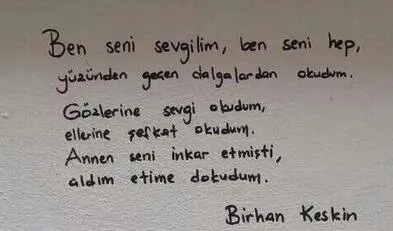 Ben seni sevgilim, ben seni hep,
yüzünden geçen dalgalardan okudum.
Gözlerine sevgi okudum,
ellerine şefkat okudum.
Annen seni inkar etmişti,
aldım etime dokudum.
Birhan Keskin